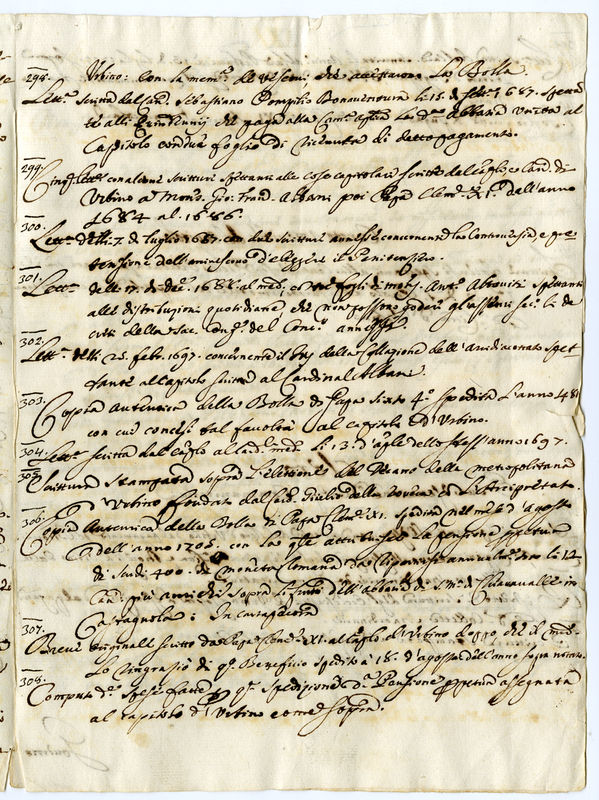 298. Urbino: con la mem.a de Vescovi, che accettarono La Bolla.
Lett.a scritta dal Can. Sebastiano Pompilio Bonaventura li 15. di feb. 1687. spett.
alli che paga alla Cam.a abbadia unita al
Capitolo con due fogli di ricevute di detto pagamento.
299. Cinq. lettere con alcune scritture spettanti alle cose capitolari scritte dal Caplo, e Can. di
Urbino a Mons. Gio: Fran. Albani poi Papa Clem. XI. dell'anno
1684 al 1686.
300. Lett.a delli 7. di luglio 1687. con due scritture annesse concernenti la Controversia, e pre
tensione dell'Arcivescovo d'eleggere il Penitenziero.
301. Lett.a delli 17. di Dec. 1688 al med. con fogli di Mons. Ant. Altoviti spettanti
alle distribuzioni quotidiane che non possono goder gl'assenti sec. li de
creti della Sac. Cong. del Conc. annessi
302. Lett.a delli 25. febr. 1697. concernente il della Collazione dell'Arcidiaconato spet
tante al Capitolo scritta al Cardinal Albani.
303. Copia Autentica della Bolla di Papa Sisto 4.o spedita l'anno 1481
con cui concesse tal facoltà al capitolo d'Urbino.
304. Lett.a scritta dal Caplo al Card. med. li 13. d'aple dello stess'anno 1697.
305. Scrittura Stampata sopra l'elettione del Decano della metropolitana
d'Urbino fondat. dal Card. Giulio della rovere e l'Arcipretato.
306. Copia Autentica della Bolla di Papa Clem. XI. spedita nel mese d'agosto
dell'anno 1705. con la qle attribuisce la pensione perpetua
di Scudi 400. di moneta Romana li 12
Can. più antichi sopra li frutti dell'abbadia di S. M. di Chiaravalle in
Castagnola: In cartapecora
307. Breve originale scritto da Papa Clem. XI. al Caplo di Urbino doppo, che il med.
lo ringraziò di q.o Beneficio spedito a 18. d'agosto dell'anno sopra notato.
308. Computo d. spese fatte p q.a Spedizione d. Pensione perpetua assegnata
al capitolo d'Urbino come sopra.